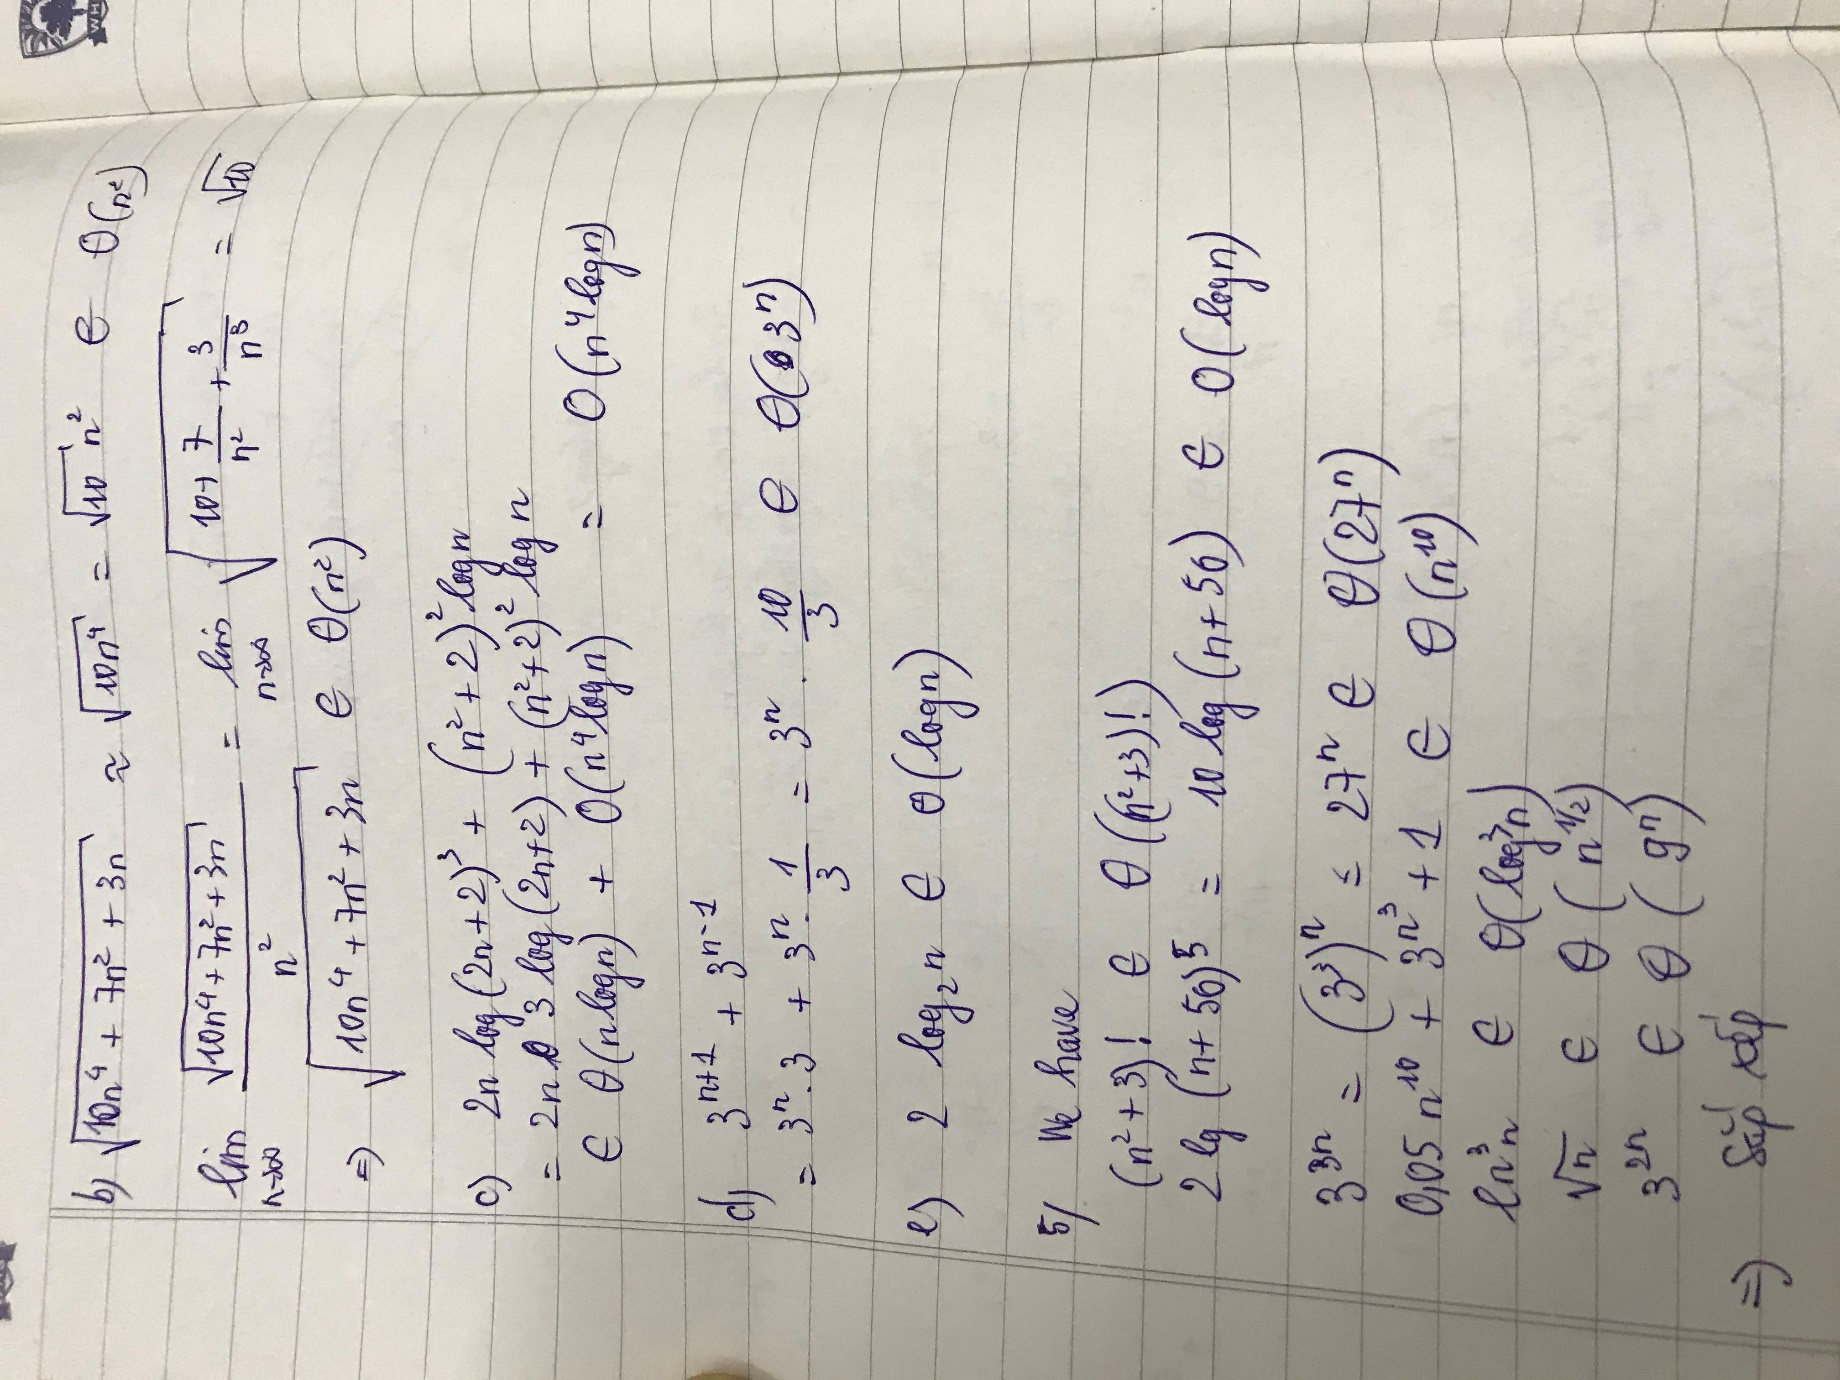 b) √(10n⁴ + 7n² + 3n) ≈ √(10n⁴) = √10 n² ∈ θ(n²)
lim n→∞ √(10n⁴ + 7n² + 3n) / n² = lim n→∞ √(10 + 7/n² + 3/n³) = √10
=) √(10n⁴ + 7n² + 3n) ∈ θ(n²)
c) 2n log(2n+2)³ + (n²+2)² log n
= 2n 3 log(2n+2) + (n²+2)² log n
∈ θ(n log n) + O(n⁴ log n) = O(n⁴ log n)
d) 3ⁿ⁺¹ + 3ⁿ⁻¹
= 3ⁿ.3 + 3ⁿ.1/3 = 3ⁿ . 10/3 ∈ θ(3ⁿ)
e) 2 log₂ n ∈ θ(log n)
5/ We have
(n²+3)! ∈ θ((n²+3)!)
2 lg (n+50)⁵ = 10 log (n+50) ∈ O(log n)
3³ⁿ = (3³)ⁿ = 27ⁿ ∈ θ(27ⁿ)
0,05 n¹⁰ + 3n³ + 1 ∈ θ(n¹⁰)
ln³ n ∈ θ(log³ n)
√n ∈ θ(n^1/2)
3²ⁿ ∈ θ(9ⁿ)
=) Sắp xếp